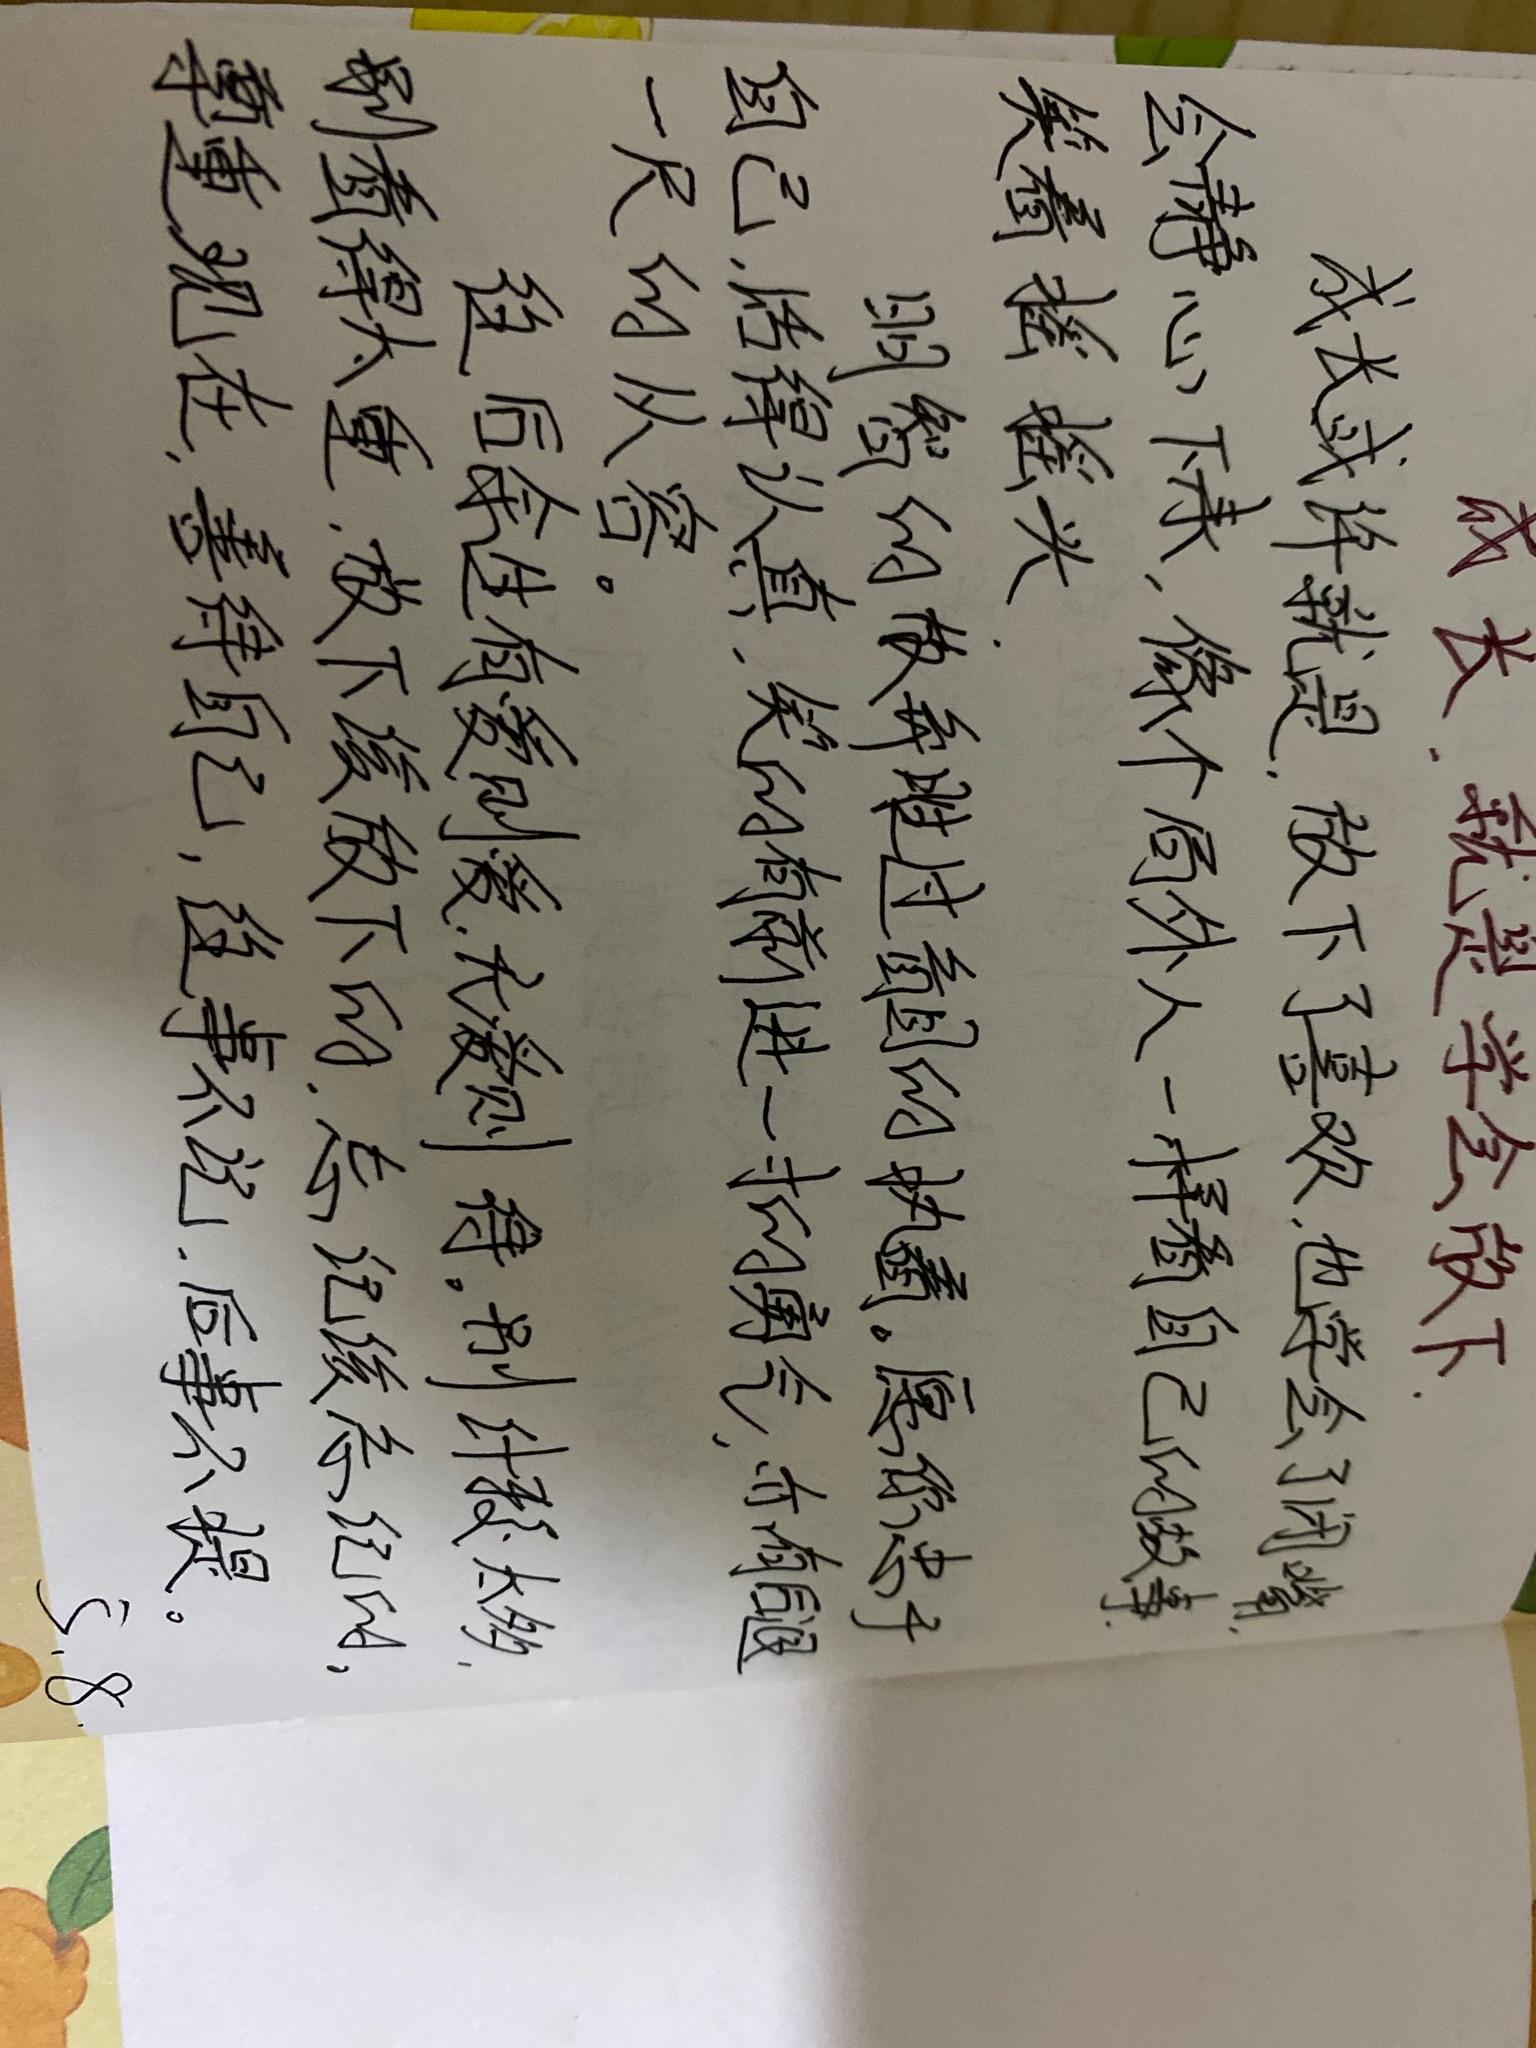 成长,就是学会放下.
成长或许就是.放下了喜欢.也学会了闭嘴.
会静心下来、像个局外人一样看自己的故事.
笑着摇摇头.
明智的放弃胜过盲目的执着。愿你忠于
自己.活得认真.笑的有前进一步的勇气,亦有退
一尺的从容。
往后余生有爱则爱.无爱则 得。别计较太多.
别看得太重.放下该放下的.忘记该忘记的,
尊重现在,善待自己,往事不说.后事不提。
5.8